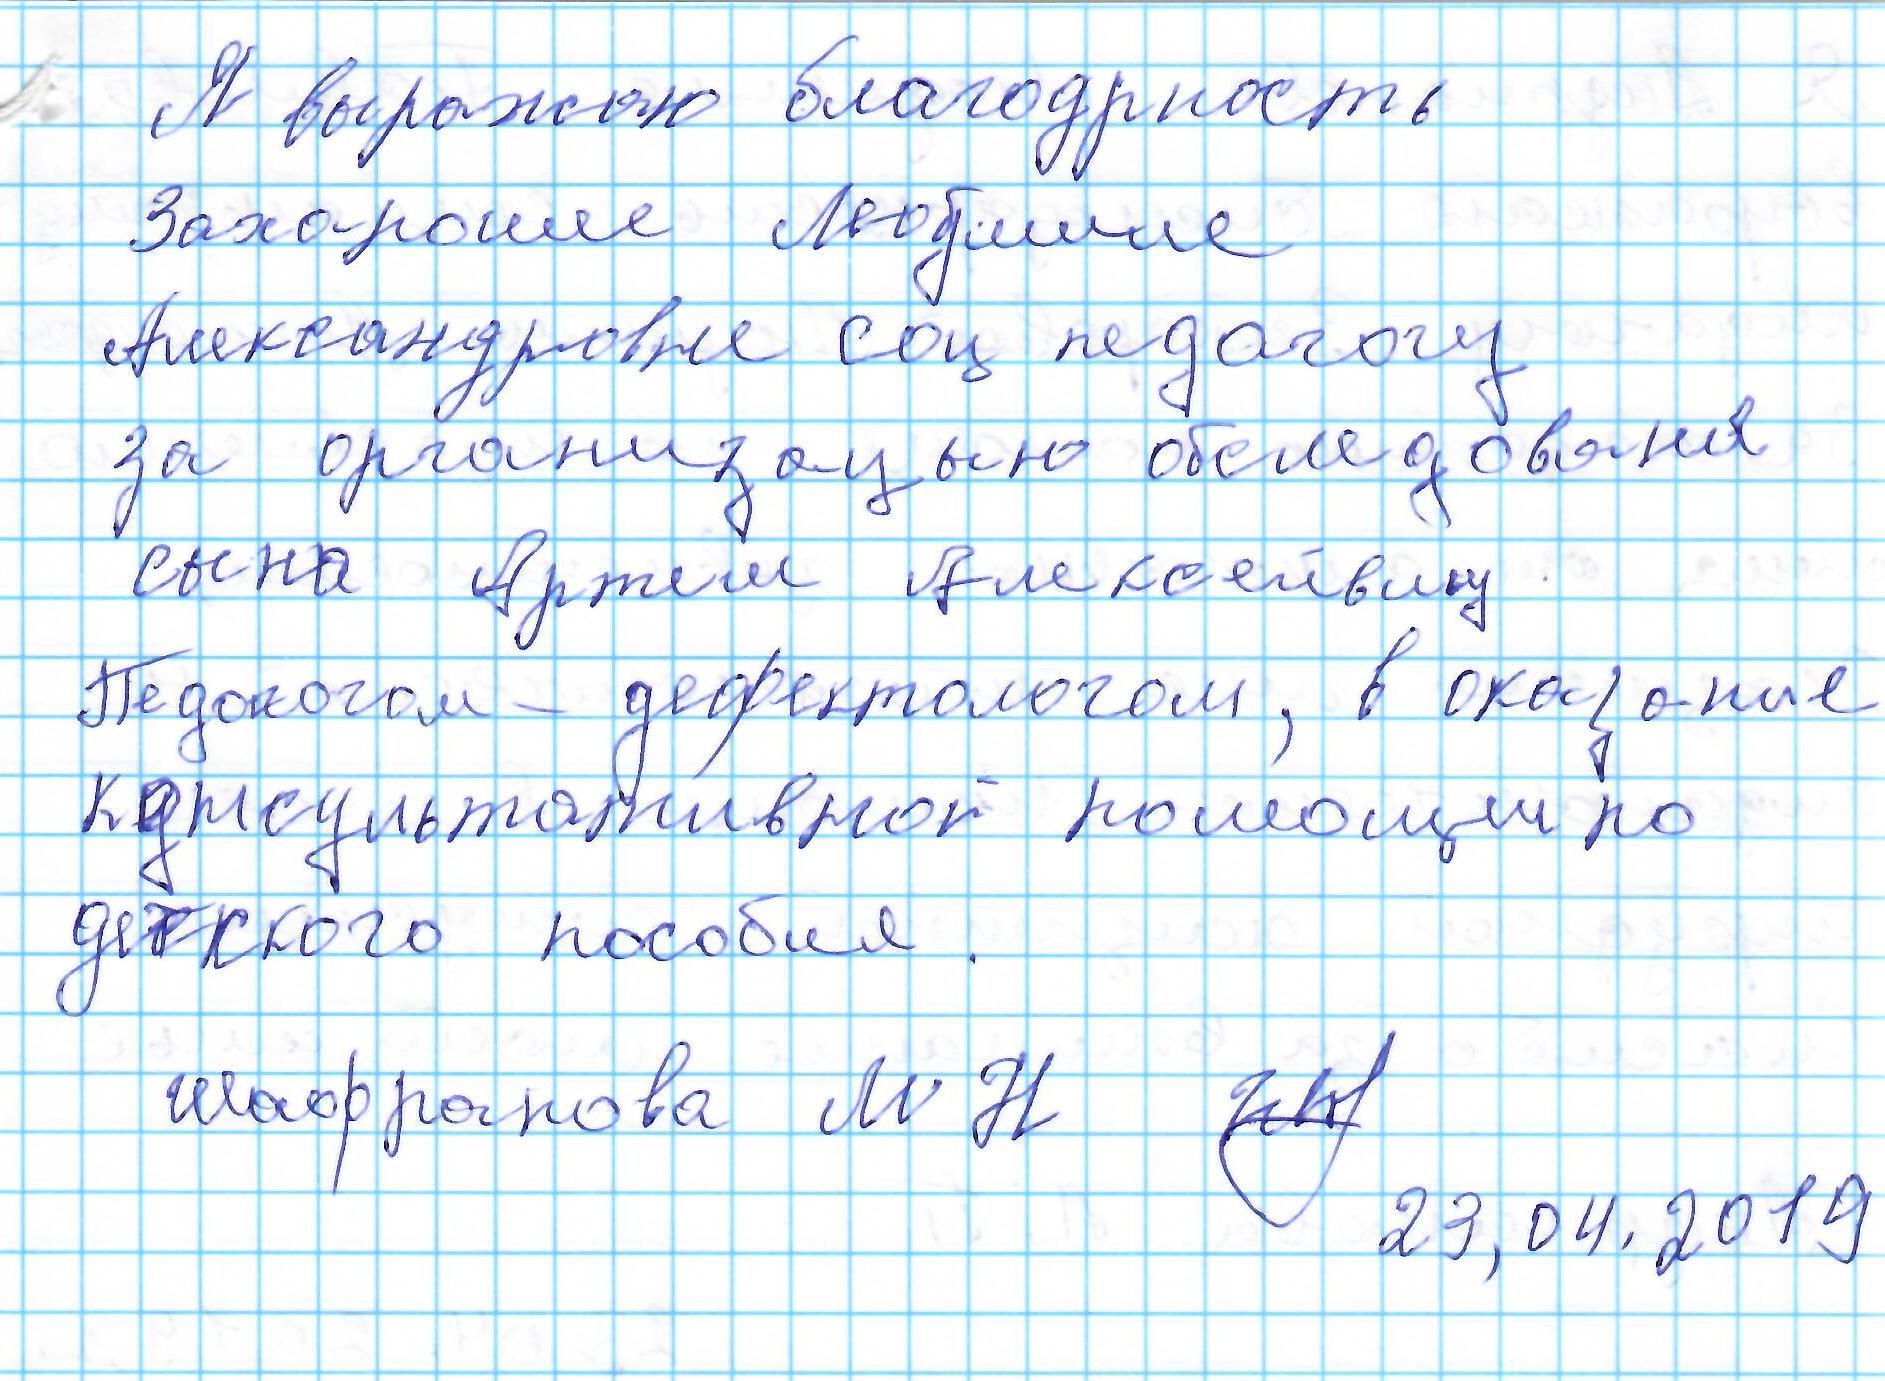 Я выражаю благодрность
Захароиле Любмиле
Александровне соц педагогу
за организацыю обследования
сына Артем Алексейвич
Педокогом - дефектологом, в оказание
консультативной помощи по
детского пособия.
Шафранова М Н
23,04.2019